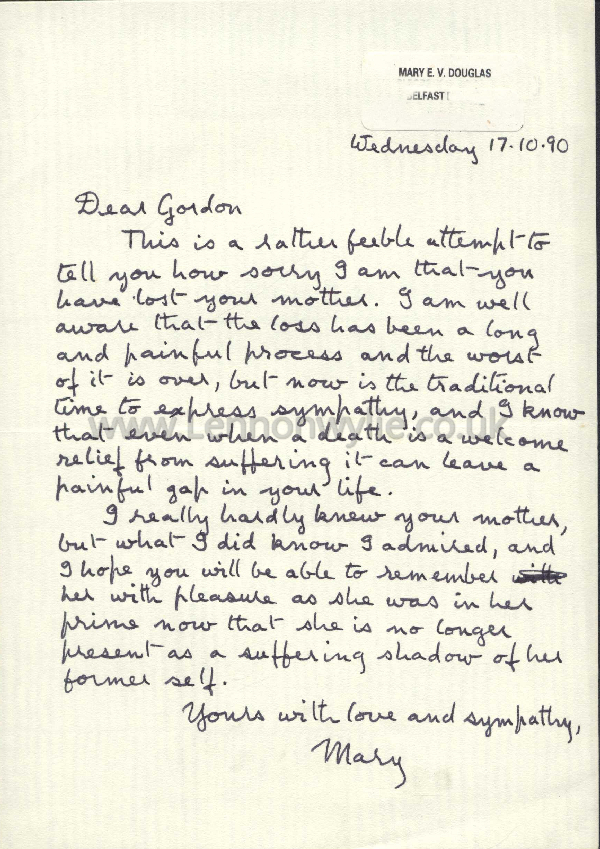 MARY E. V. DOUGLAS
BELFAST
Wednesday 17.10.90
Dear Gordon
This is a rather feeble attempt to
tell you how sorry I am that you
have lost your mother. I am well
aware that the loss has been a long
and painful process and the worst
of it is over, but now is the traditional
time to express sympathy, and I know
www.Lennonwylie.co.uk
that even when a death is a welcome
relief from suffering it can leave a
painful gap in your life.
I really hardly knew your mother,
but what I did know I admired, and
I hope you will be able to remember with
her with pleasure as she was in her
prime now that she is no longer
present as a suffering shadow of her
former self.
Yours with love and sympathy,
Mary